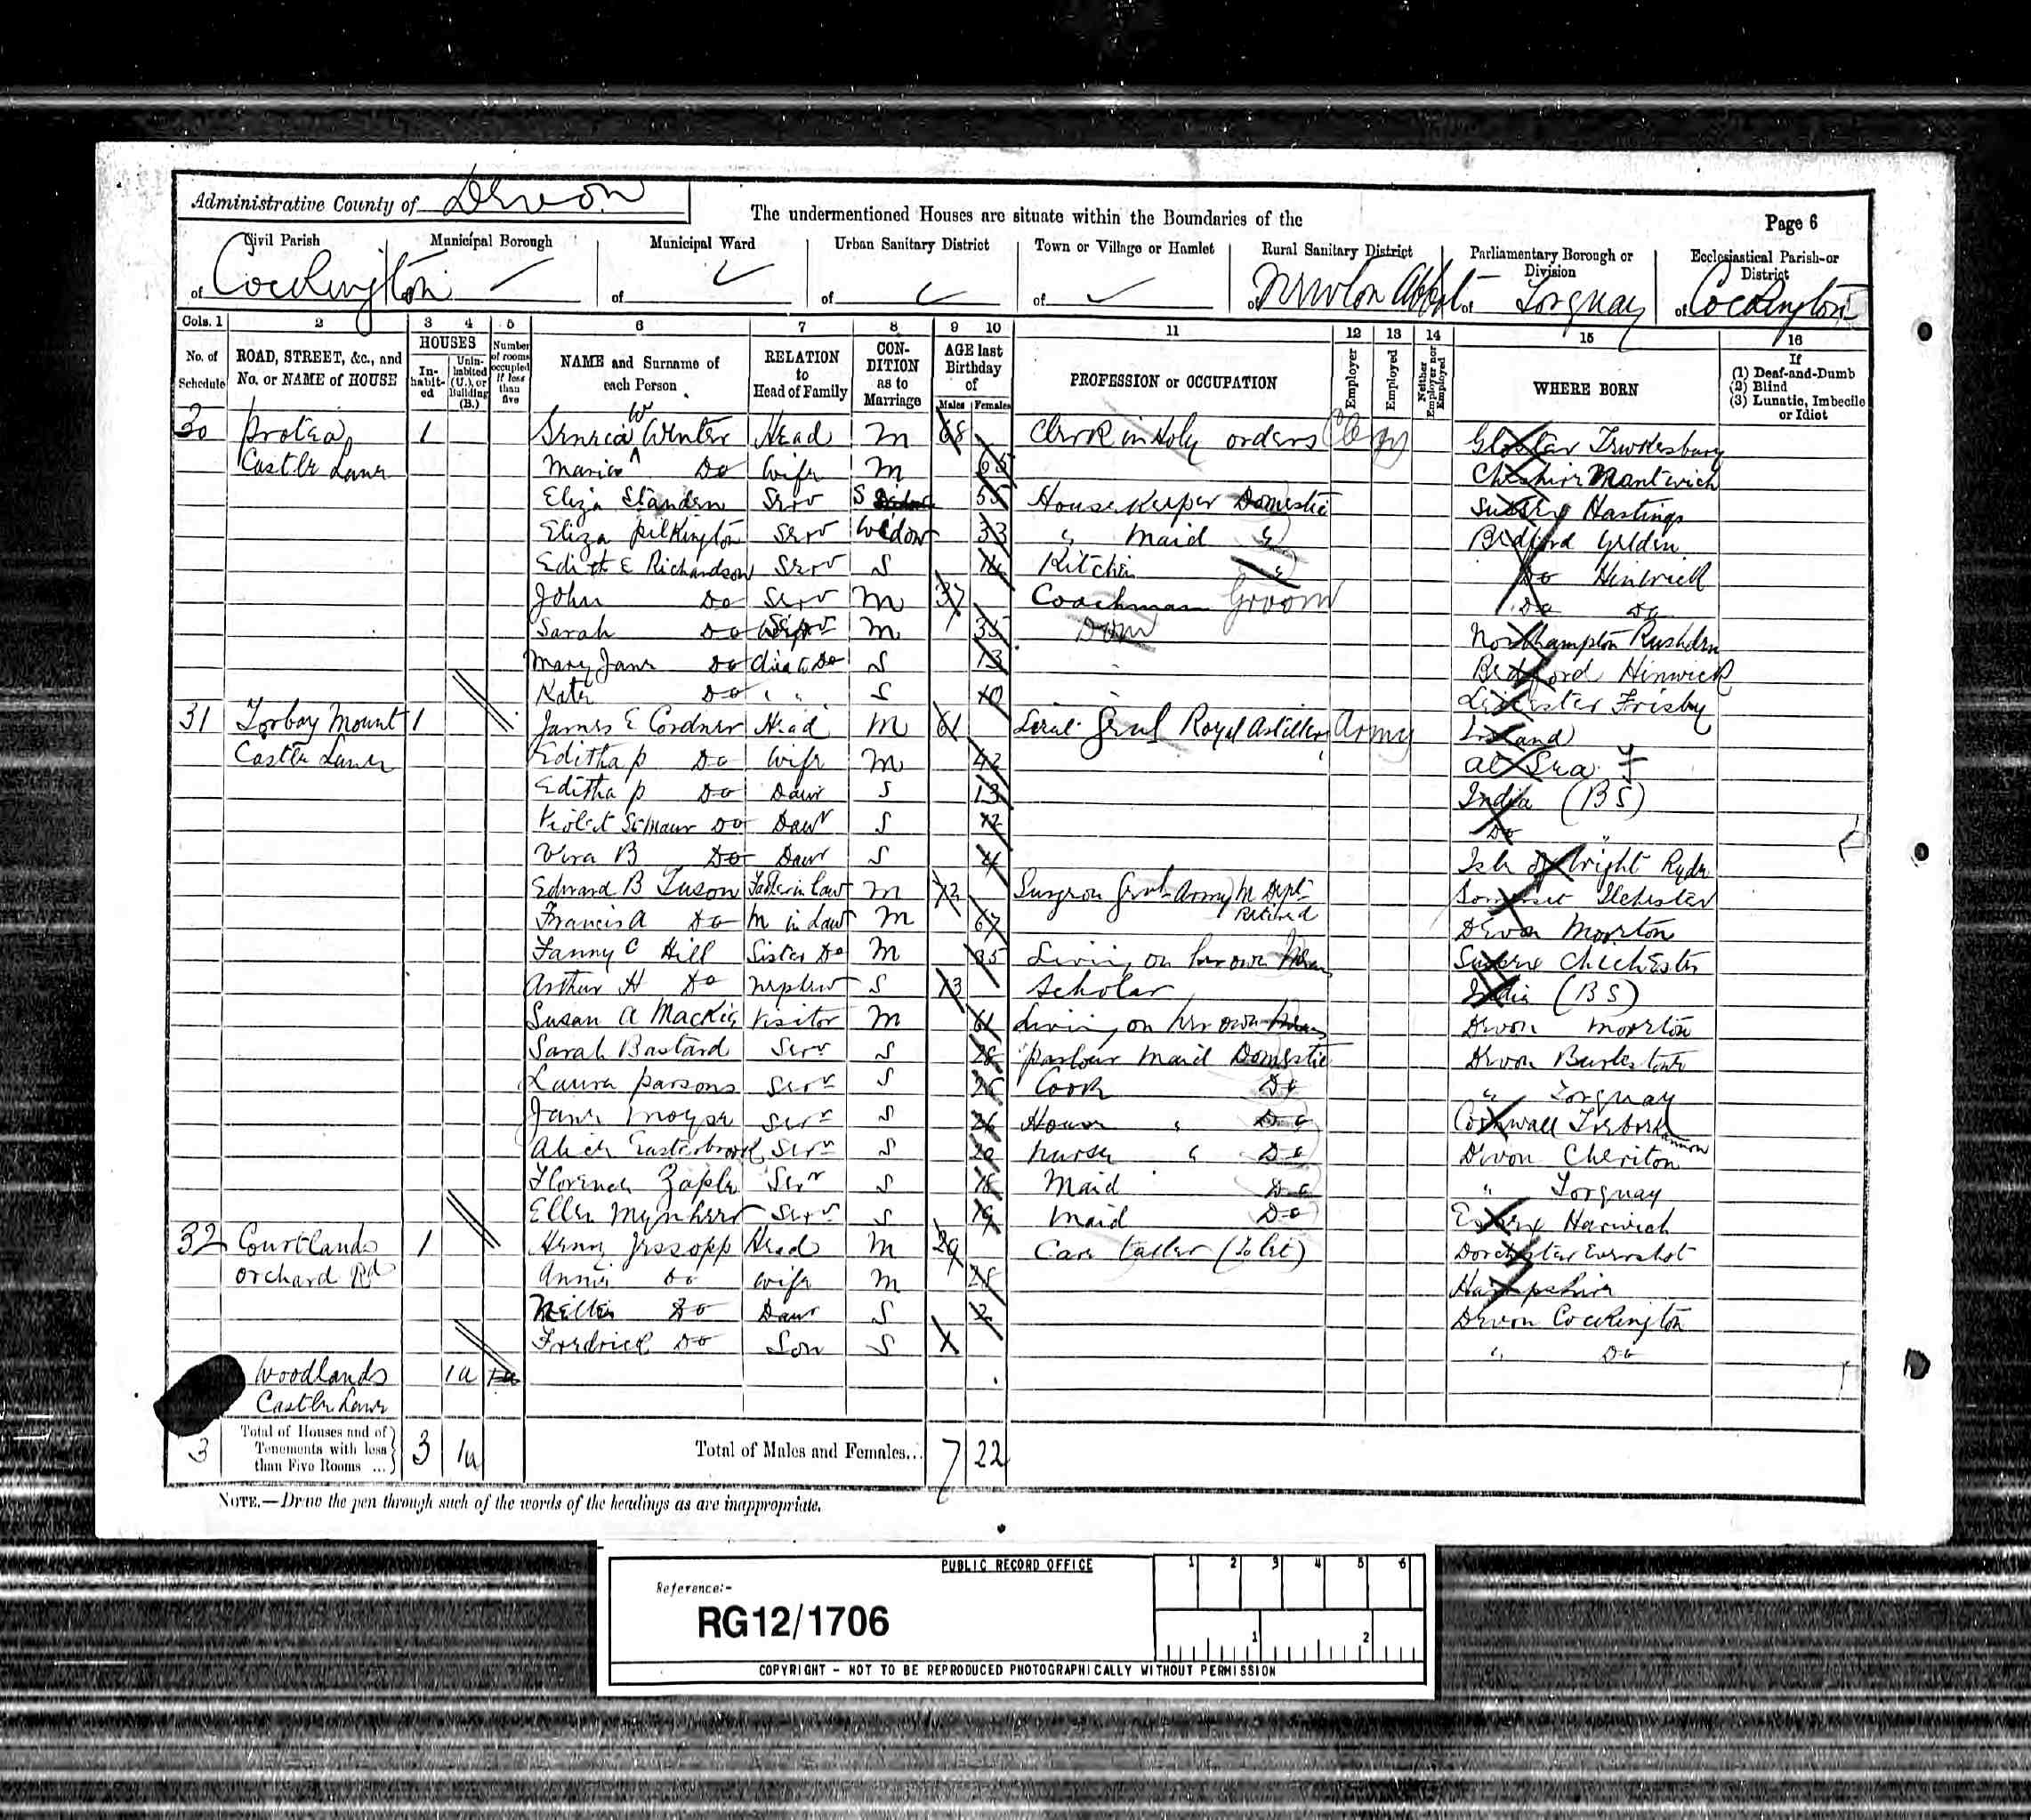 Administrative County of Devon
The undermentioned Houses are situate within the Boundaries of the
Page 6
Civil Parish Municipal Borough Municipal Ward Urban Sanitary District Town or Village or Hamlet Rural Sanitary District Parliamentary Borough or Division Ecclesiastical Parish or District
of Cockington of of of of Newton Abbot of Torquay of Cockington
Cols. 1 2 3 4 5 6 7 8 9 10 11 12 13 14 15 16
No. of Schedule ROAD, STREET, &c., and No. or NAME of HOUSE HOUSES Inhabited Uninhabited (U.), or Building (B.) Number of rooms occupied if less than five NAME and Surname of each Person RELATION to Head of Family CONDITION as to Marriage AGE last Birthday of Males Females PROFESSION or OCCUPATION Employer Employed Neither Employer nor Employed WHERE BORN If (1) Deaf-and-Dumb (2) Blind (3) Lunatic, Imbecile or Idiot
30 Protea 1 W Winter Head M 68 Clerk in Holy orders Tewkesbury
Castle Lane Maria Do Wife M 65 Cheshire Nantwich
Eliza Standen Serv S 55 House Keeper Domestic Hastings
Eliza Pilkington Serv Widow 33 " Maid Bedford
Edith E Richardson Serv S Kitchen Do Hinwick
John Do Serv M 37 Coachman Groom Do Do
Sarah Do M 35 Dom Northampton Rushden
Mary Jane Do S 13 Bedford Hinwick
Kate Do " " S 10 Leicester Frisby
31 Torbay Mount 1 James E Cordner Head M 61 Royal Artillery Army Ireland
Castle Lane Editha P Do Wife M 42 At Sea
Editha P Do Daur S 13 India (BS)
Violet St Maur Do Daur S 12 Do "
Vera B Do Daur S 4 Isle of Wight Ryde
Edward B Tuson Father in Law M 72 Surgeon Genl Army M Dept Retired Somerset Ilchester
Francis A Do M in Law M 67 Devon
Fanny C Hill Sister Do M 35 Living on her own Means Sussex Chichester
Arthur H Do Nephew S 13 Scholar India (BS)
Susan A Mackie Visitor M 61 Living on her own Means Devon
Sarah Bastard Serv S 28 Parlour Maid Domestic Devon
Laura Parsons Serv S Cook Do " Torquay
Jane Moyse Serv S 26 House " Do Cornwall
Alice Easterbrook Serv S 20 Nurse " Do Devon Cheriton
Florence Zaple Serv S 18 Maid Do " Torquay
Ellen Mynheer Serv S 19 Maid Do Essex Harwich
32 Courtlands 1 Henry Jessopp Head M 29 Care taker (To let) Dorchester Evershot
Orchard Rd Annie Do Wife M 28 Hampshire
Nellie Do Daur S 2 Devon Cockington
Fredrick Do Son S " Do
Woodlands 1u
Castle Lane
3 Total of Houses and of Tenements with less than Five Rooms ... 3 1u Total of Males and Females... 7 22
NOTE.—Draw the pen through such of the words of the headings as are inappropriate.
PUBLIC RECORD OFFICE
Reference:-
RG12/1706
1 2 3 4 5 6
1 2
COPYRIGHT - NOT TO BE REPRODUCED PHOTOGRAPHICALLY WITHOUT PERMISSION